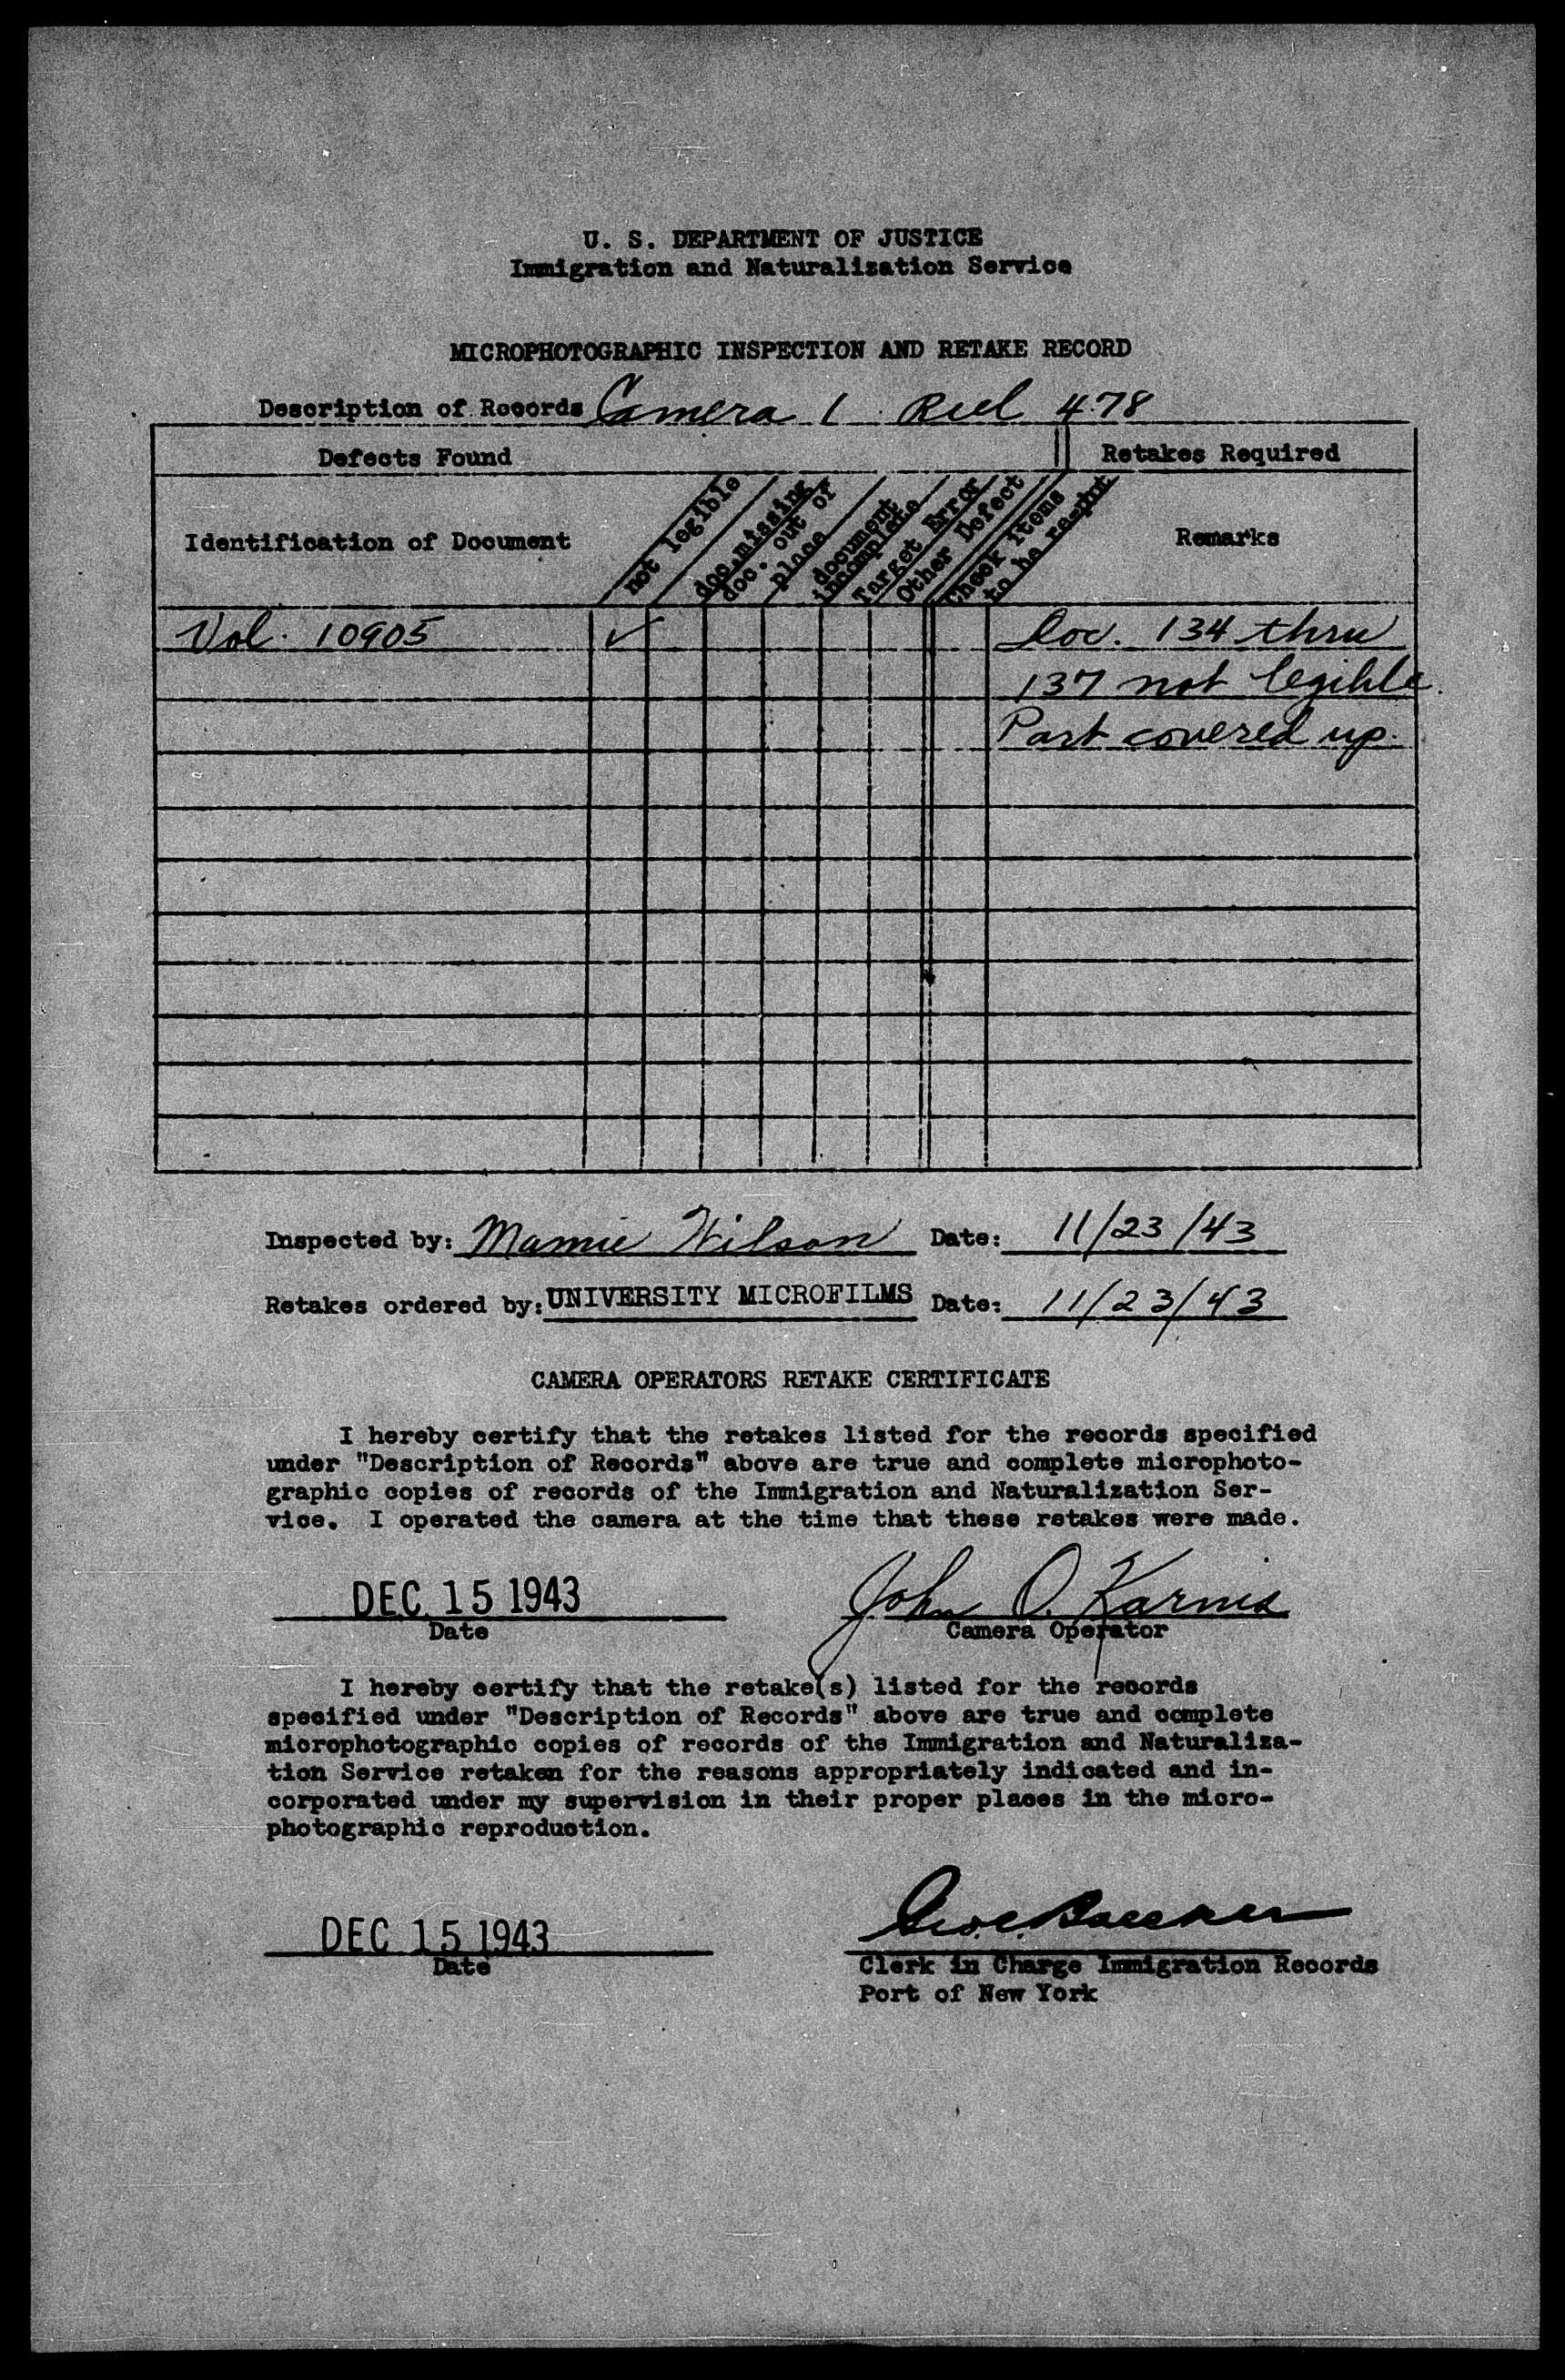 U. S. DEPARTMENT OF JUSTICE
Immigration and Naturalization Service
MICROPHOTOGRAPHIC INSPECTION AND RETAKE RECORD
Description of Records Camera 1 Reel 478
Defects Found
Retakes Required
Identification of Document
not legible
doc. missing
doc. out of
place
document
incomplete
Target Error
Other Defect
Check items
to be re-phot
Remarks
Vol. 10905 ✓ Doc. 134 thru
137 not legible.
Part covered up.
Inspected by: Mamie Wilson Date: 11/23/43
Retakes ordered by: UNIVERSITY MICROFILMS Date: 11/23/43
CAMERA OPERATORS RETAKE CERTIFICATE
I hereby certify that the retakes listed for the records specified
under "Description of Records" above are true and complete microphoto-
graphic copies of records of the Immigration and Naturalization Ser-
vice. I operated the camera at the time that these retakes were made.
DEC 15 1943 John O. Karnis
Date Camera Operator
I hereby certify that the retake(s) listed for the records
specified under "Description of Records" above are true and complete
microphotographic copies of records of the Immigration and Naturaliza-
tion Service retaken for the reasons appropriately indicated and in-
corporated under my supervision in their proper places in the micro-
photographic reproduction.
DEC 15 1943 Geo. C.
Date Clerk in Charge Immigration Records
Port of New York